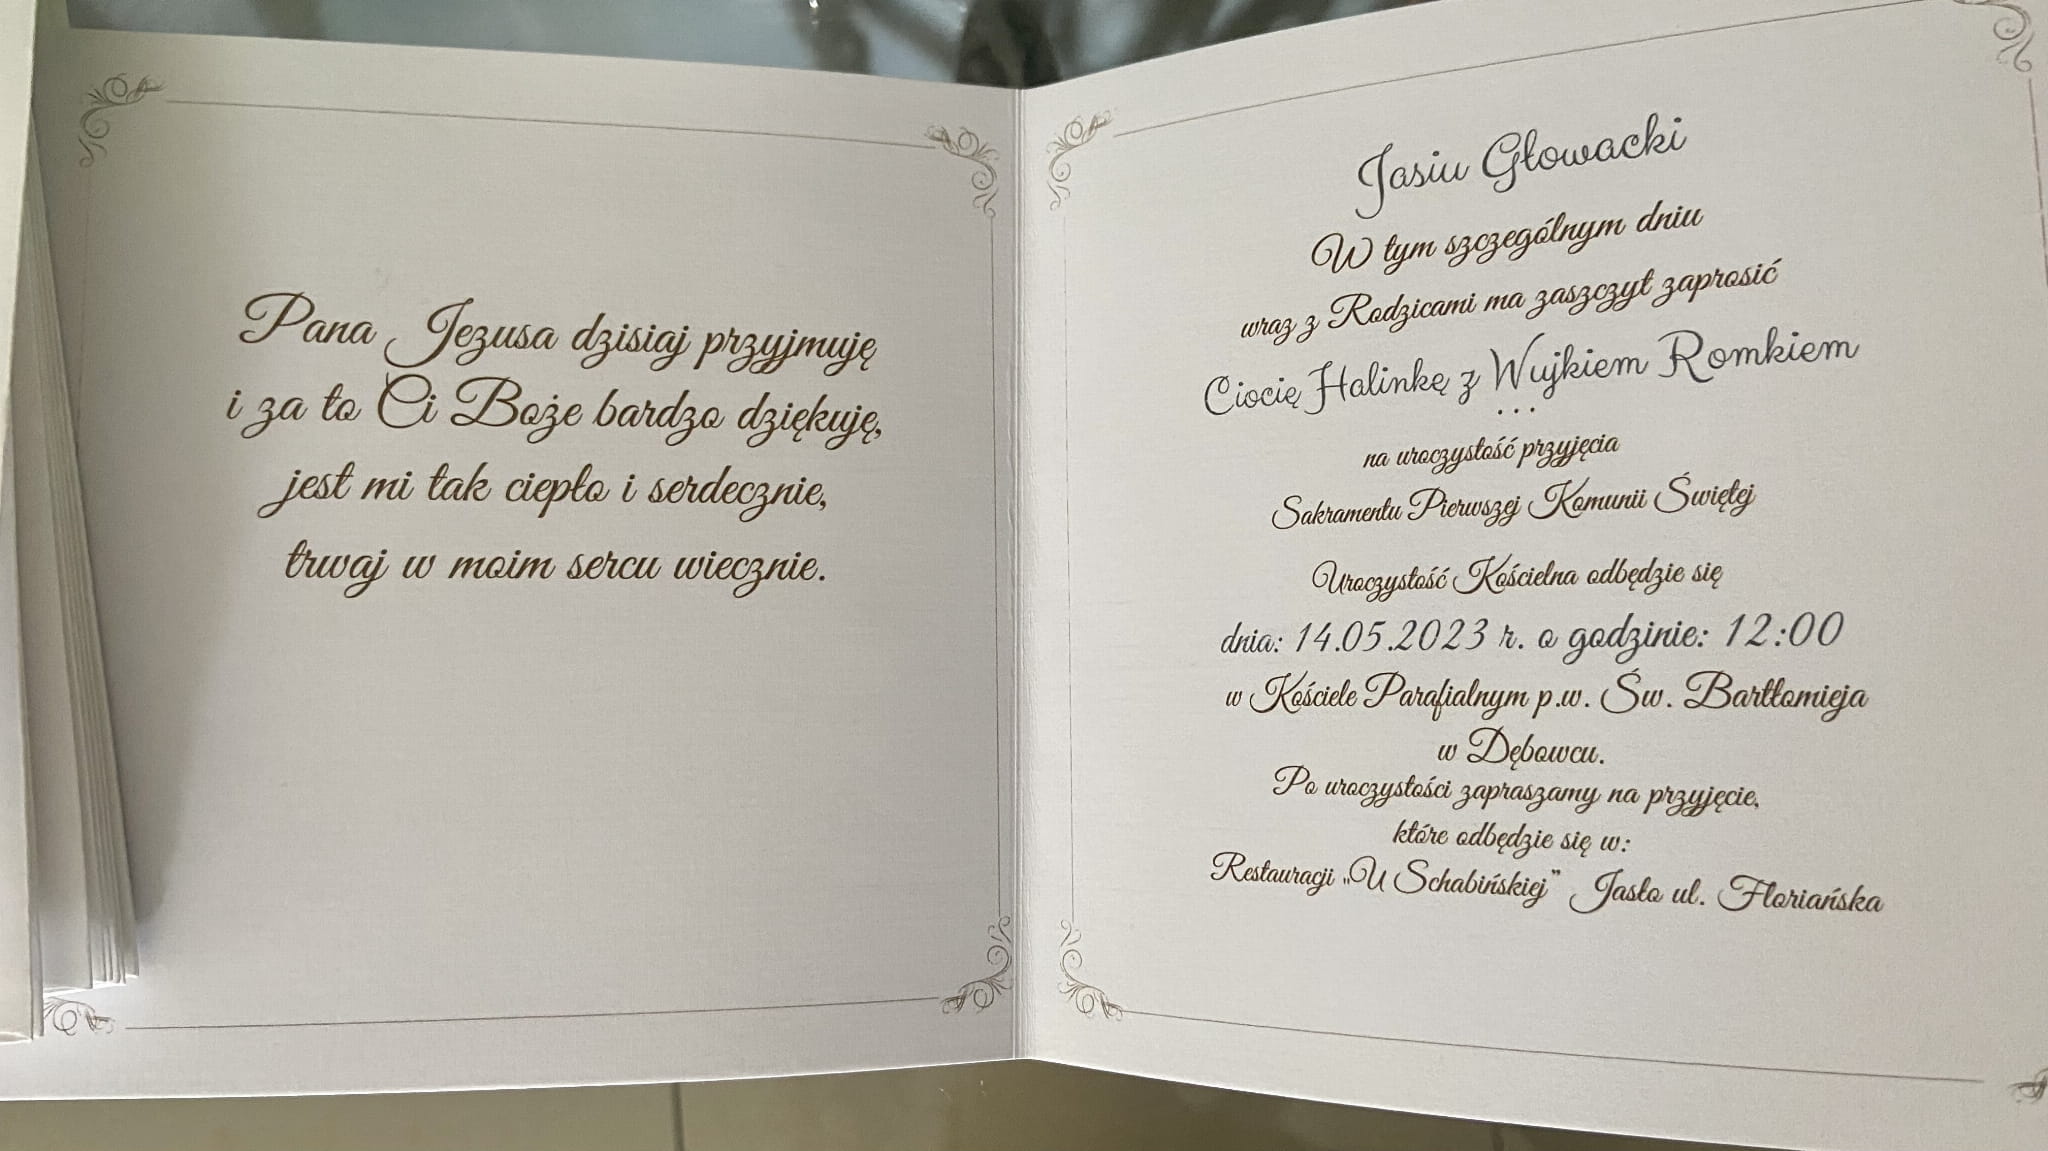 Pana Jezusa dzisiaj przyjmuję
i za to Ci Boże bardzo dziękuję,
jest mi tak ciepło i serdecznie,
trwaj w moim sercu wiecznie.
Jasiu Głowacki
W tym szczególnym dniu
wraz z Rodzicami ma zaszczyt zaprosić
Ciocię Halinkę z Wujkiem Romkiem
...
na uroczystość przyjęcia
Sakramentu Pierwszej Komunii Świętej
Uroczystość Kościelna odbędzie się
dnia: 14.05.2023 r. o godzinie: 12:00
w Kościele Parafialnym p.w. Św. Bartłomieja
w Dębowcu.
Po uroczystości zapraszamy na przyjęcie,
które odbędzie się w:
Restauracji „U Schabińskiej” Jasło ul. Floriańska